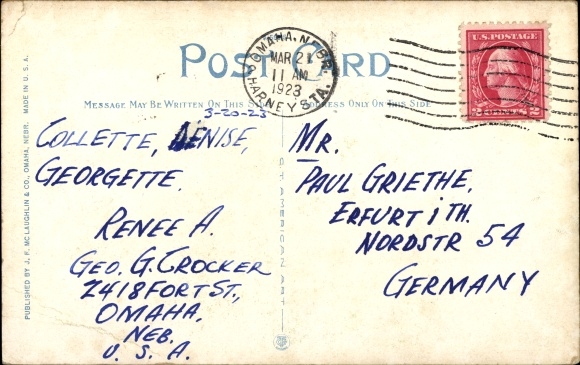 POST CARD
MESSAGE MAY BE WRITTEN ON THIS SIDE
ADDRESS ONLY ON THIS SIDE
OMAHA, NEBR.
MAR 21
11 AM
1923
HARNEY STA.
U.S. POSTAGE
2 CENTS 2
3-20-23
COLLETTE, DENISE,
GEORGETTE.
RENEE A.
GEO. G. CROCKER
2418 FORT ST.,
OMAHA,
NEB.
U. S. A.
MR.
PAUL GRIETHE,
ERFURT i TH.
NORDSTR 54
GERMANY
PUBLISHED BY J. F. MCLAUGHLIN & CO., OMAHA, NEBR. MADE IN U. S. A.
AMERICAN ART